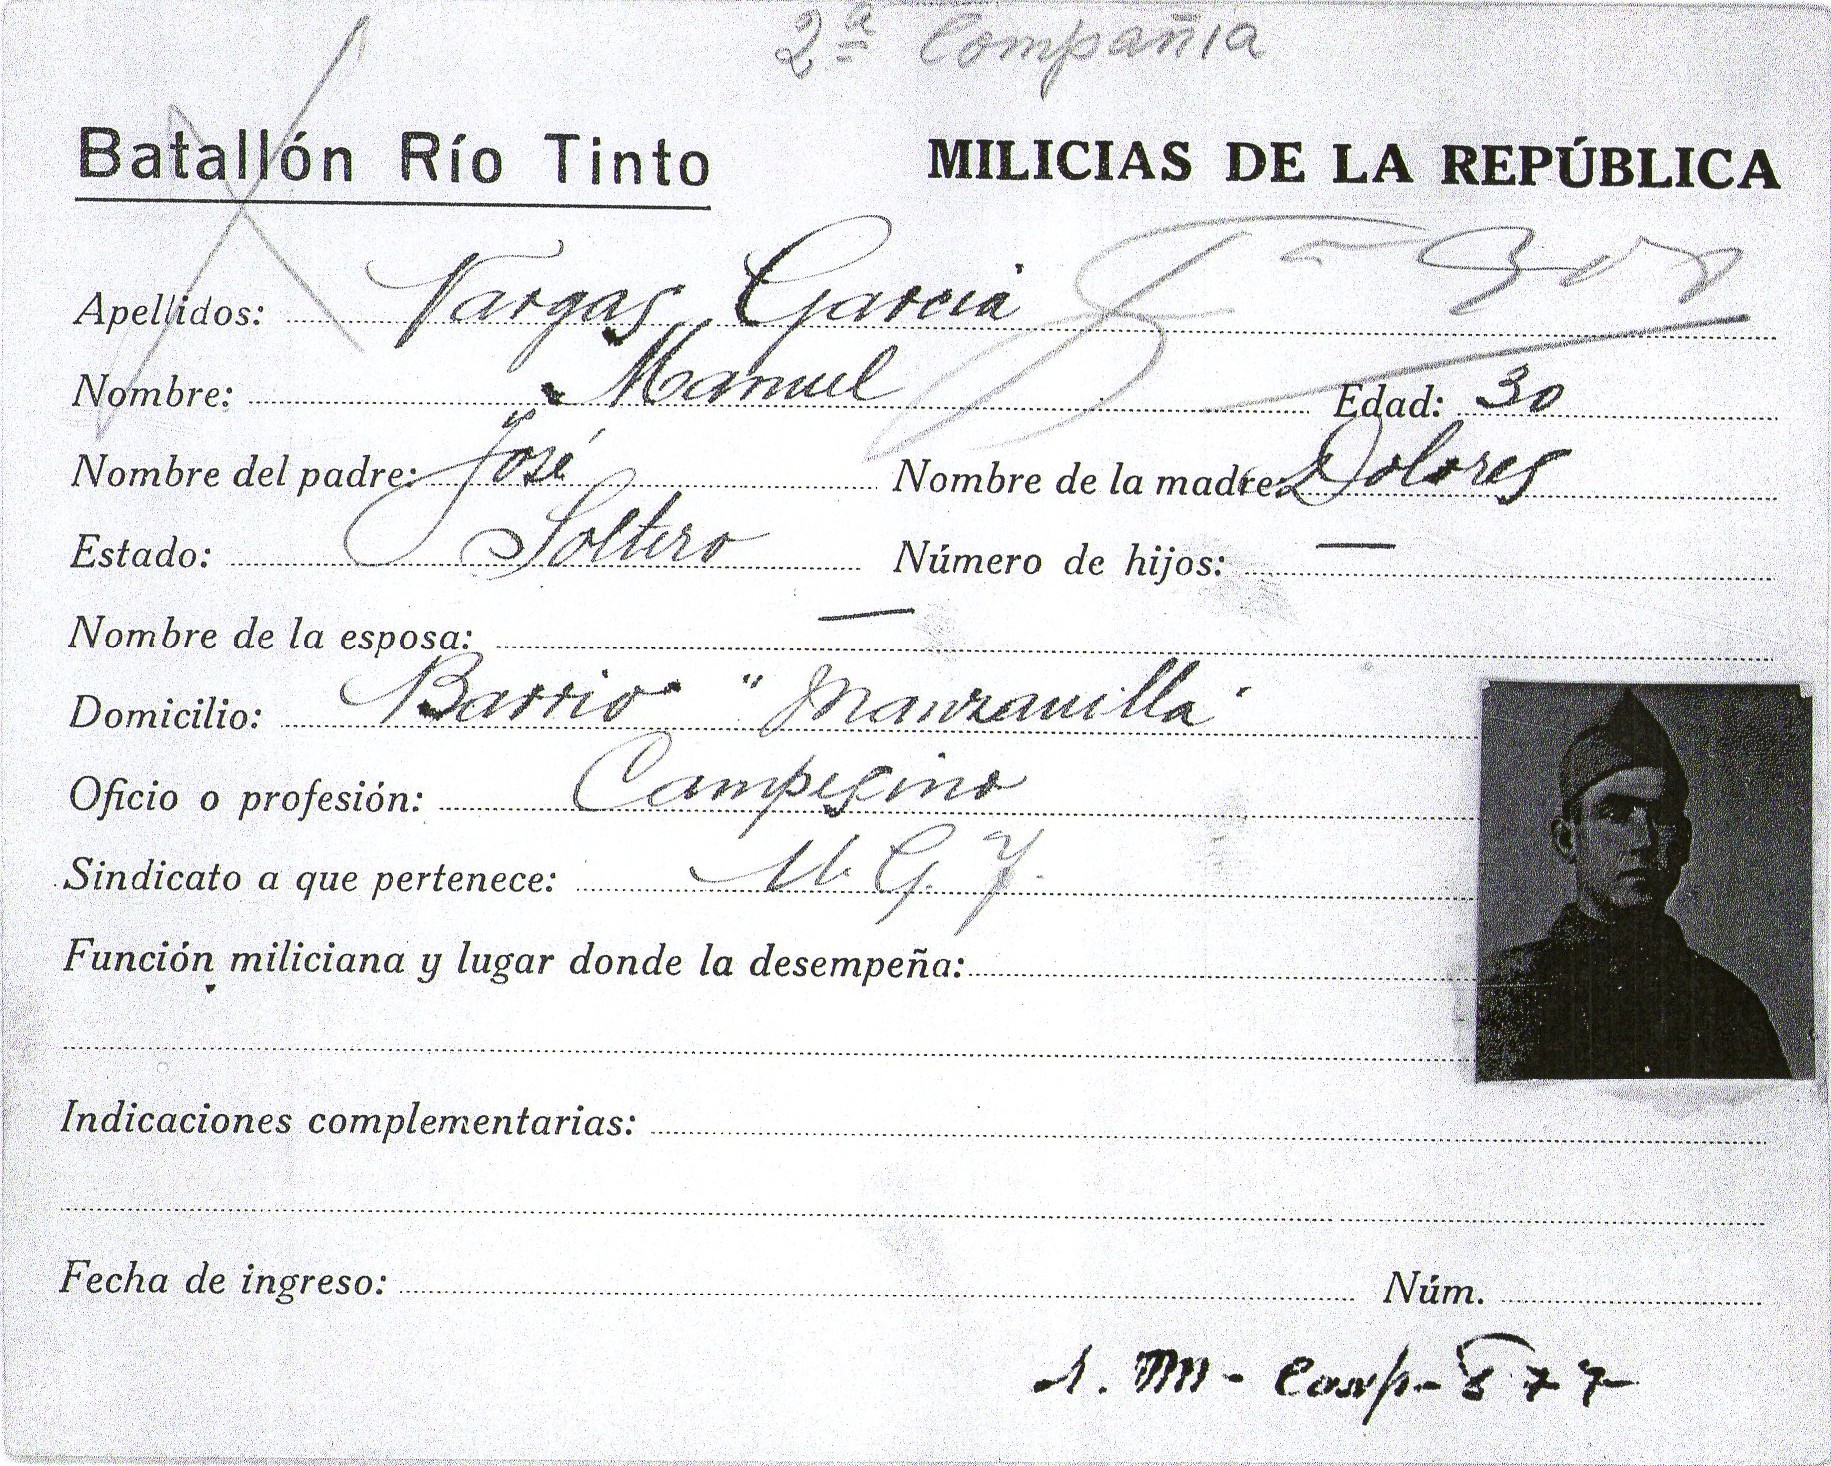 2ª Compañia
Batallón Río Tinto MILICIAS DE LA REPÚBLICA
Apellidos: Vargas Garcia
Nombre: Manuel Edad: 30
Nombre del padre: José Nombre de la madre: Dolores
Estado: Soltero Número de hijos: —
Nombre de la esposa: —
Domicilio: Barrio "Manzanilla"
Oficio o profesión: Campesino
Sindicato a que pertenece: U. G. T.
Función miliciana y lugar donde la desempeña:
Indicaciones complementarias:
Fecha de ingreso: Núm.